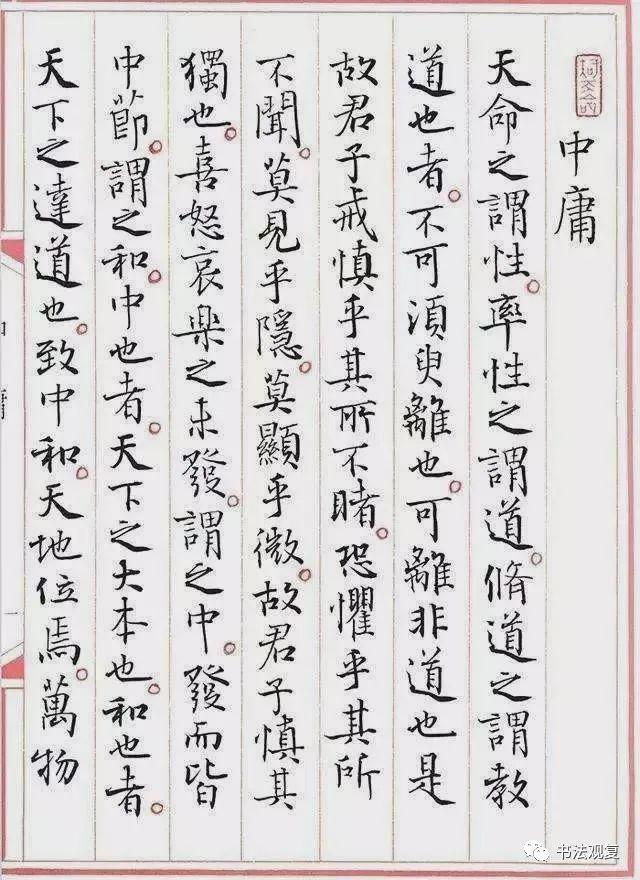 中庸
天命之謂性。率性之謂道。脩道之謂教
道也者。不可須臾離也。可離非道也是
故君子戒慎乎其所不睹。恐懼乎其所
不聞。莫見乎隱。莫顯乎微。故君子慎其
獨也。喜怒哀樂之未發。謂之中。發而皆
中節。謂之和。中也者。天下之大本也。和也者。
天下之達道也。致中和。天地位焉。萬物
书法观复